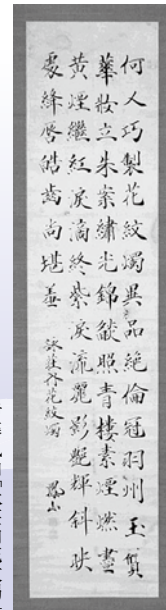 何人巧製花紋燭異品絶倫冠羽州玉質
華妝立朱案繡光錦燄照青楼素煙燃盡
黄煙継紅涙滴終紫涙流麗影艶輝斜映
處絳唇皓齒尚堪羞
詠牡丹花紋燭